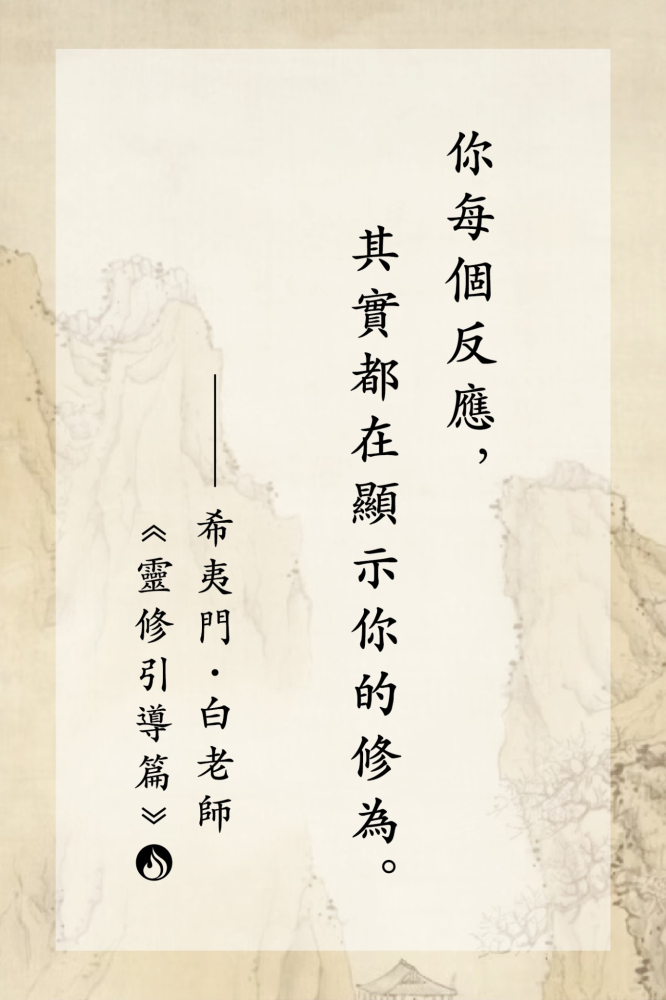 你每個反應，
其實都在顯示你的修為。
——希夷門・白老師
《靈修引導篇》